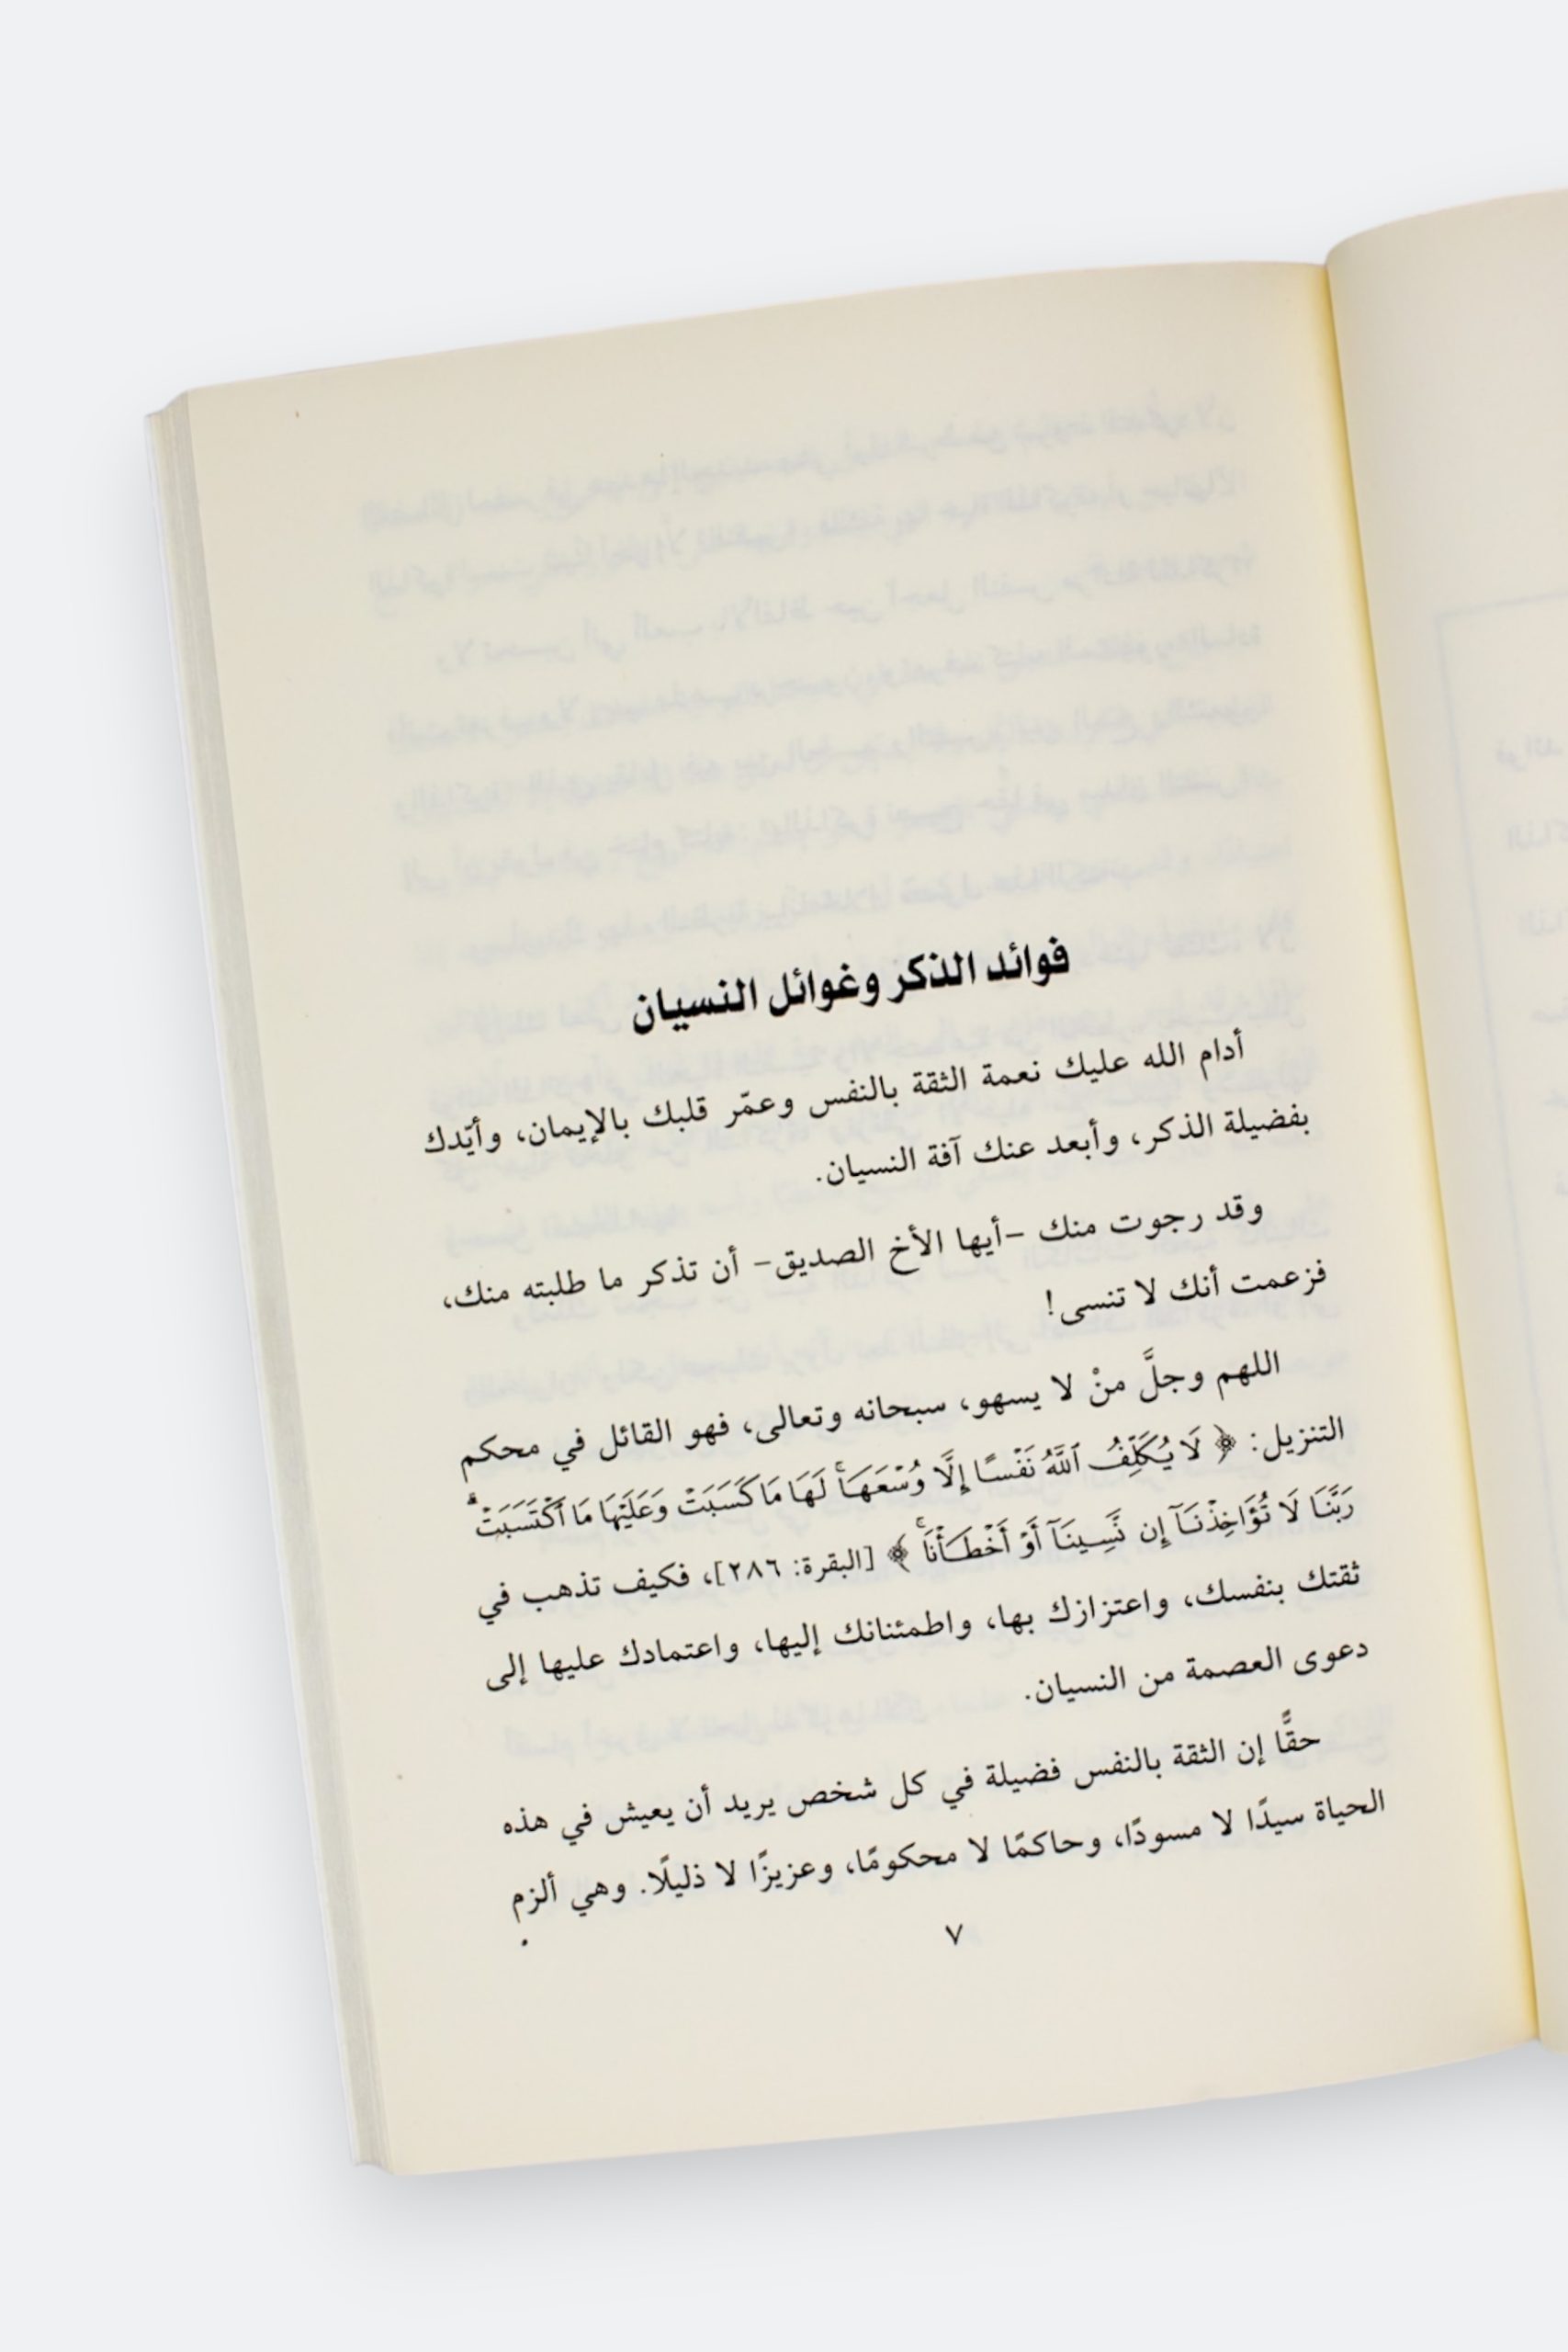 فوائد الذكر وغوائل النسيان
أدام الله عليك نعمة الثقة بالنفس وعمّر قلبك بالإيمان، وأيّدك
بفضيلة الذكر، وأبعد عنك آفة النسيان.
وقد رجوت منك -أيها الأخ الصديق- أن تذكر ما طلبته منك،
فزعمت أنك لا تنسى!
اللهم وجلَّ منْ لا يسهو، سبحانه وتعالى، فهو القائل في محكم
التنزيل: ﴿ لَا يُكَلِّفُ ٱللَّهُ نَفْسًا إِلَّا وُسْعَهَا ۚ لَهَا مَا كَسَبَتْ وَعَلَيْهَا مَا ٱكْتَسَبَتْ ۗ
رَبَّنَا لَا تُؤَاخِذْنَآ إِن نَّسِينَآ أَوْ أَخْطَأْنَا ۚ ﴾ [البقرة: ٢٨٦]، فكيف تذهب في
ثقتك بنفسك، واعتزازك بها، واطمئنانك إليها، واعتمادك عليها إلى
دعوى العصمة من النسيان.
حقًّا إن الثقة بالنفس فضيلة في كل شخص يريد أن يعيش في هذه
الحياة سيدًا لا مسودًا، وحاكمًا لا محكومًا، وعزيزًا لا ذليلًا. وهي ألزم
٧